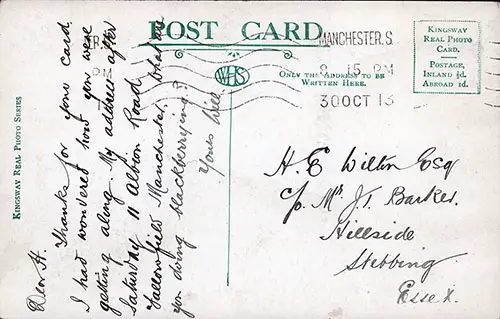 POST CARD
KINGSWAY
REAL PHOTO
CARD.
POSTAGE,
INLAND ½d.
ABROAD 1d.
MANCHESTER. S.
8 15 PM
30 OCT 13
R. S
PM
WHS
ONLY THE ADDRESS TO BE
WRITTEN HERE.
KINGSWAY REAL PHOTO SERIES
Dear H. Thanks for your card.
I had wondered how you were
getting along. My address after
Saturday 11 Albion Road
Fallowfield Manchester. What are
you doing blackberrying?
Yours Will.
H. E Wilton Esq
c/o Mr. Jt. Barker.
Hillside
Stebbing
Essex.